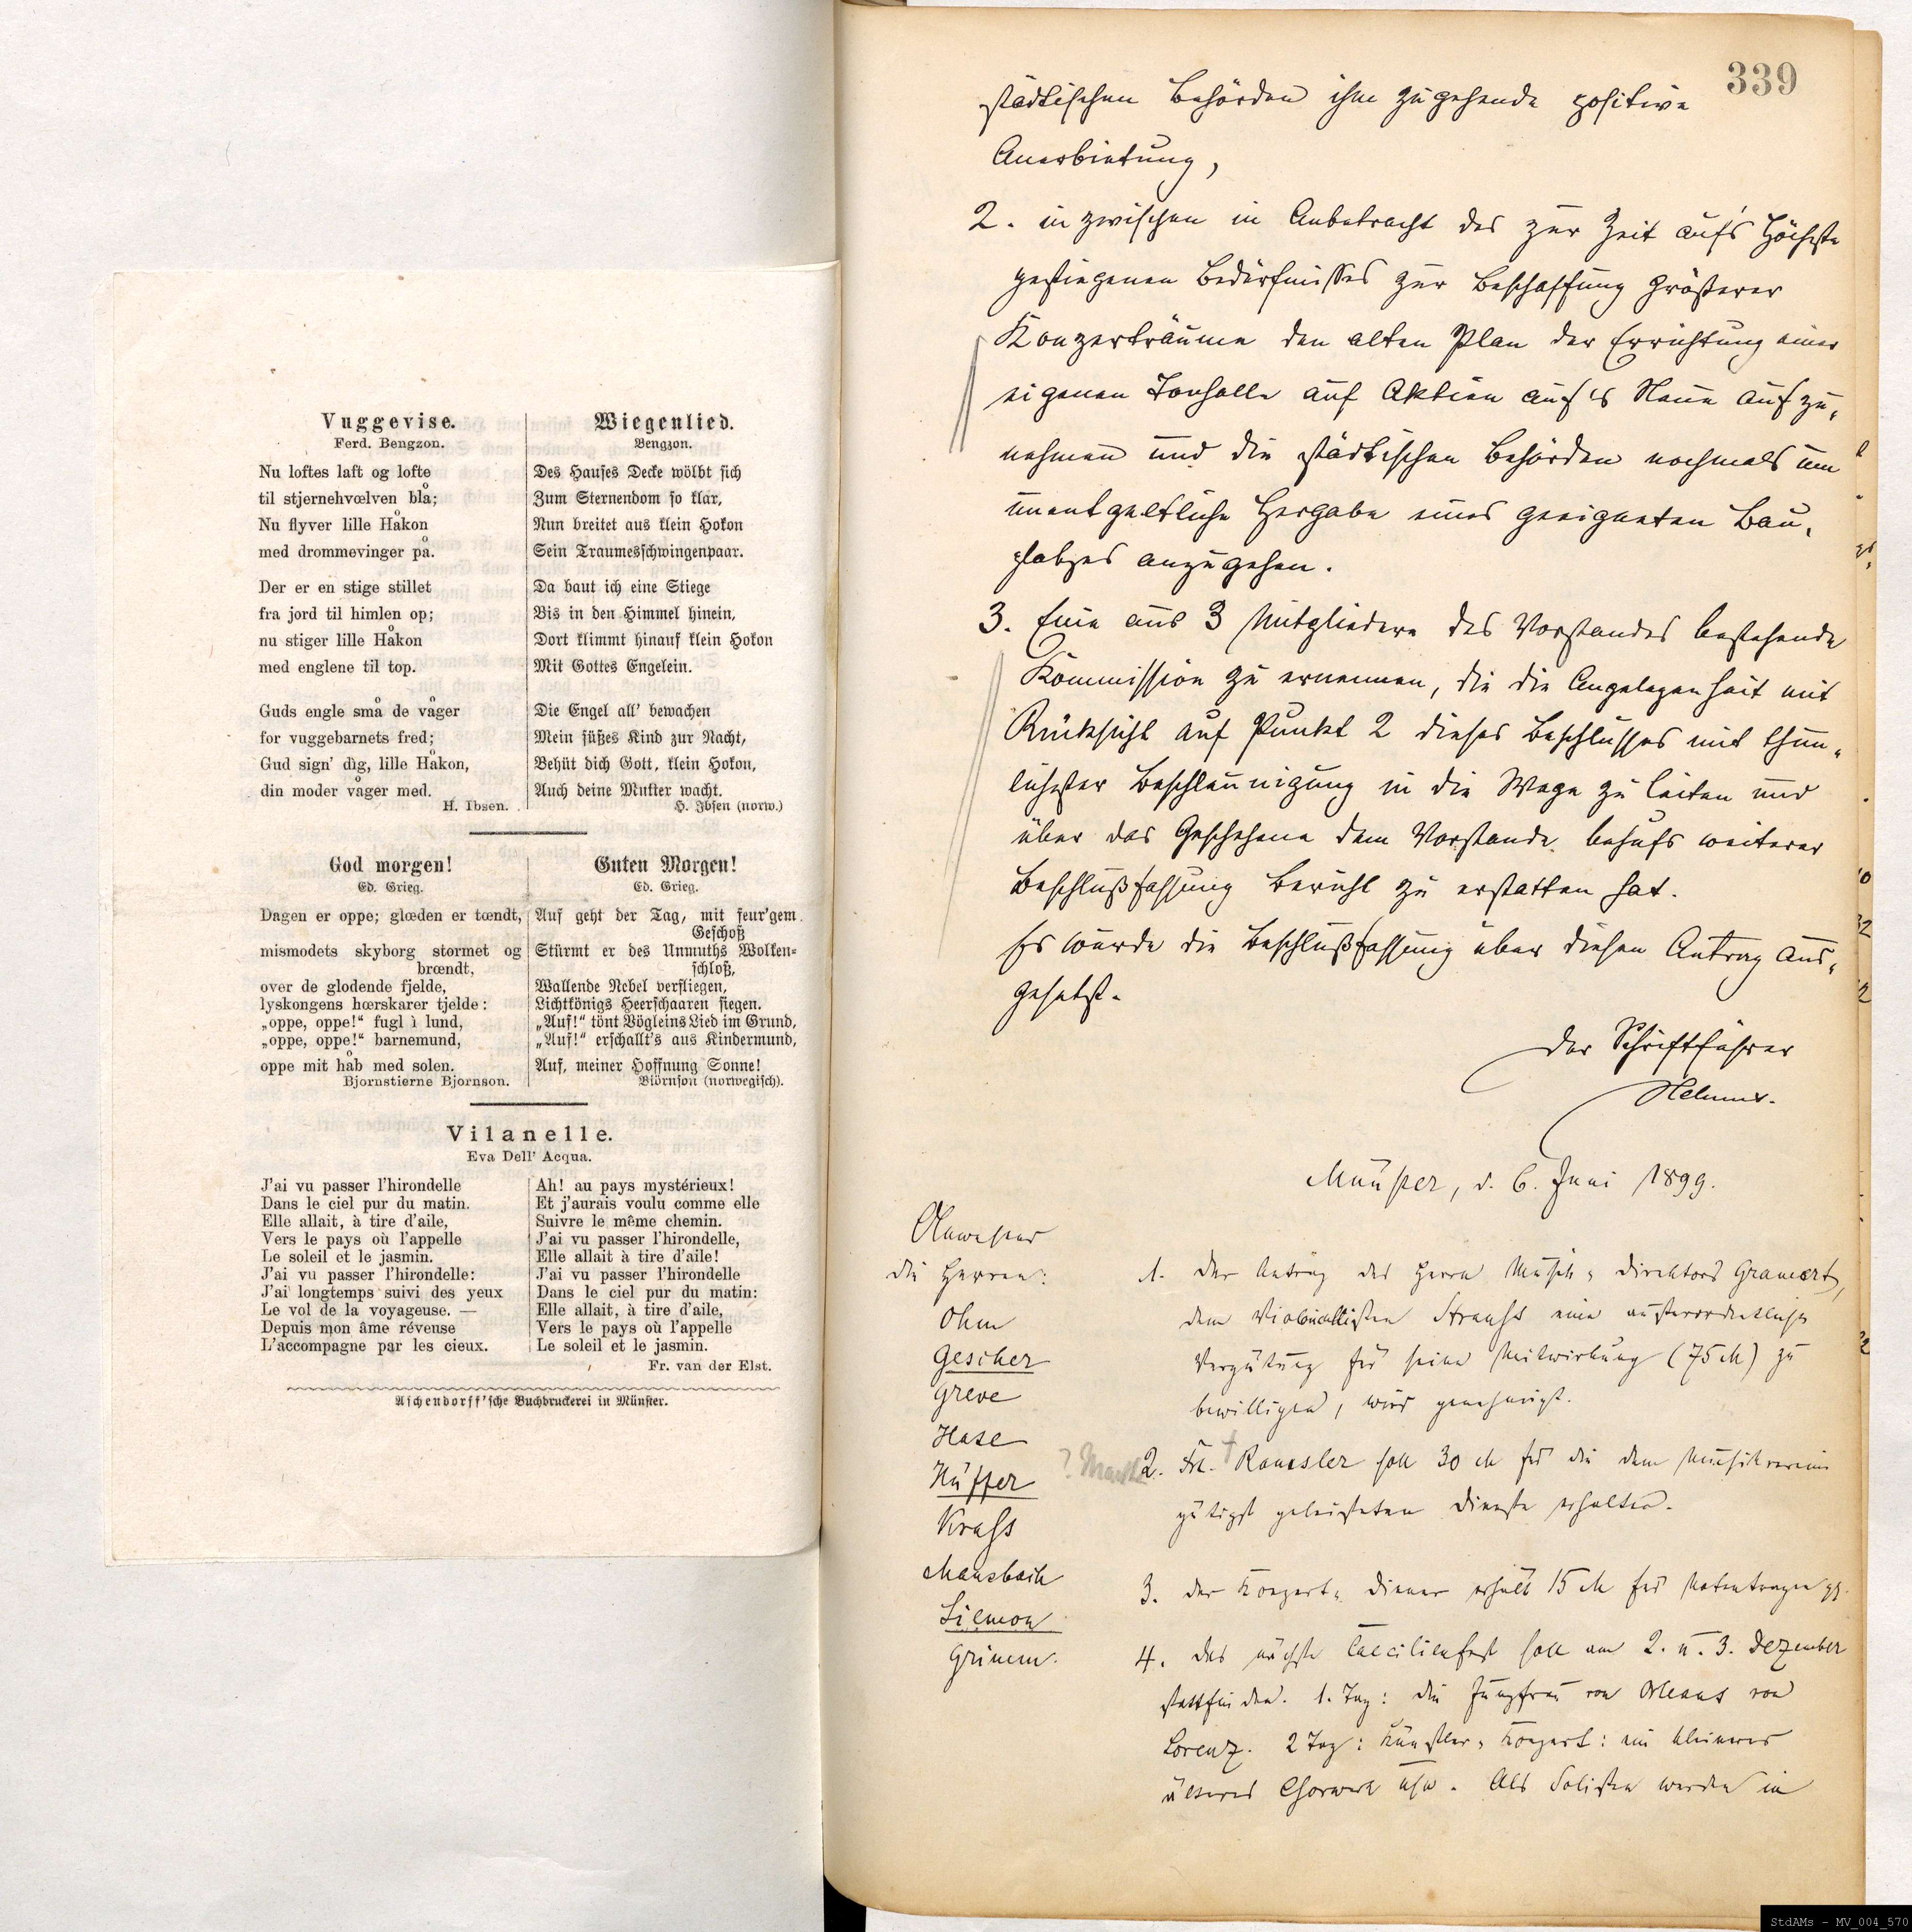 Vuggevise.
Ferd. Bengzon.
Nu loftes laft og lofte
til stjernehvœlven blå;
Nu flyver lille Håkon
med drommevinger på.
Der er en stige stillet
fra jord til himlen op;
nu stiger lille Håkon
med englene til top.
Guds engle små de våger
for vuggebarnets fred;
Gud sign' dig, lille Håkon,
din moder våger med.
H. Ibsen.
Wiegenlied.
Bengzon.
Des Hauses Decke wölbt sich
Zum Sternendom so klar,
Nun breitet aus klein Hokon
Sein Traumesschwingenpaar.
Da baut ich eine Stiege
Bis in den Himmel hinein,
Dort klimmt hinauf klein Hokon
Mit Gottes Engelein.
Die Engel all' bewachen
Mein süßes Kind zur Nacht,
Behüt dich Gott, klein Hokon,
Auch deine Mutter wacht.
H. Ibsen (norw.)
God morgen!
Ed. Grieg.
Dagen er oppe; glœden er tœndt,
mismodets skyborg stormet og
brœndt,
over de glodende fjelde,
lyskongens hœrskarer tjelde:
„oppe, oppe!“ fugl i lund,
„oppe, oppe!“ barnemund,
oppe mit håb med solen.
Bjornstierne Bjornson.
Guten Morgen!
Ed. Grieg.
Auf geht der Tag, mit feur'gem
Geschoß
Stürmt er des Unmuths Wolken-
schloß,
Wallende Nebel verfliegen,
Lichtkönigs Heerschaaren siegen.
„Auf!“ tönt Vögleins Lied im Grund,
„Auf!“ erschallt's aus Kindermund,
Auf, meiner Hoffnung Sonne!
Biörnson (norwegisch).
Vilanelle.
Eva Dell' Acqua.
J'ai vu passer l'hirondelle
Dans le ciel pur du matin.
Elle allait, à tire d'aile,
Vers le pays où l'appelle
Le soleil et le jasmin.
J'ai vu passer l'hirondelle:
J'ai longtemps suivi des yeux
Le vol de la voyageuse. —
Depuis mon âme réveuse
L'accompagne par les cieux.
Ah! au pays mystérieux!
Et j'aurais voulu comme elle
Suivre le même chemin.
J'ai vu passer l'hirondelle,
Elle allait à tire d'aile!
J'ai vu passer l'hirondelle
Dans le ciel pur du matin:
Elle allait, à tire d'aile,
Vers le pays où l'appelle
Le soleil et le jasmin.
Fr. van der Elst.
Aschendorff'sche Buchdruckerei in Münster.
339
städtischen Behörden ihm zugehende positive
Anerbietung,
2. inzwischen in Anbetracht des zur Zeit auf's Höchste
gestiegenen Bedürfnisses zur Beschaffung größerer
Konzerträume den alten Plan der Errichtung einer
eigenen Tonhalle auf Aktien auf's Neue aufzu-
nehmen und die städtischen Behörden nochmals um
unentgeltliche Hergabe eines geeigneten Bau-
platzes anzugehen.
3. Eine aus 3 Mitgliedern des Vorstandes bestehende
Kommission zu ernennen, die die Angelegenheit mit
Rücksicht auf Punkt 2 dieses Beschlusses mit thun-
lichster Beschleunigung in die Wege zu leiten und
über das Geschehene dem Vorstande behufs weiterer
Beschlußfassung Bericht zu erstatten hat.
Es wurde die Beschlußfassung über diesen Antrag aus-
gesetzt.
Der Schriftführer
Helmus.
Münster, d. 6. Juni 1899.
Anwesend
die Herren:
Ohm
Gescher
Greve
Hase
Hüffer
Krass
Mansbach
Siemon
Grimm.
1. Der Antrag des Herrn Musik-Direktors Grawert,
dem Violoncellisten Strauss eine außerordentliche
Vergütung für seine Mitwirkung (75 M) zu
bewilligen, wird genehmigt.
2. Frl. Ramsler soll 30 M für die dem Musikverein
gütigst geleisteten Dienste erhalten.
3. Der Konzert-Diener erhält 15 M für Notentragen pp.
4. Das nächste Caecilienfest soll am 2. u. 3. Dezember
stattfinden. 1. Tag: die Jungfrau von Orleans von
Lorenz. 2 Tag: Künstler-Konzert: ein kleineres
älteres Chorwerk usw. Als Solisten werden in
StdAMs - MV_004_570